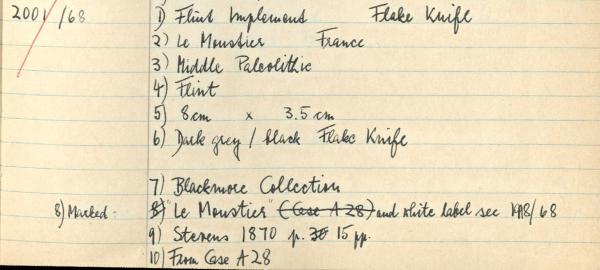 2001/68 1) Flint Implement Flake Knife
2) Le Moustier France
3) Middle Paleolithic
4) Flint
5) 8cm x 3.5cm
6) Dark grey / black Flake Knife
7) Blackmore Collection
8) Marked: 8) "Le Moustier" (Case A 28) and white label see 1918/68
9) Stevens 1870 p. 30 15 pp.
10) From Case A 28